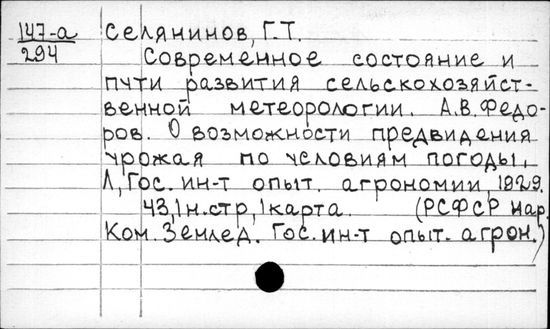 147-а Селянинов, Г.Т.
294
Современное состояние и
пути развития сельскохозяйст-
венной метеорологии. А.В. Федо-
ров. О возможности предвидения
урожая по условиям погоды.
Л, Гос. ин-т опыт. агрономии, 1929.
43, 1 н. стр, 1 карта. (РСФСР Нар.
Ком. Землед. Гос. ин-т опыт. агрон.)